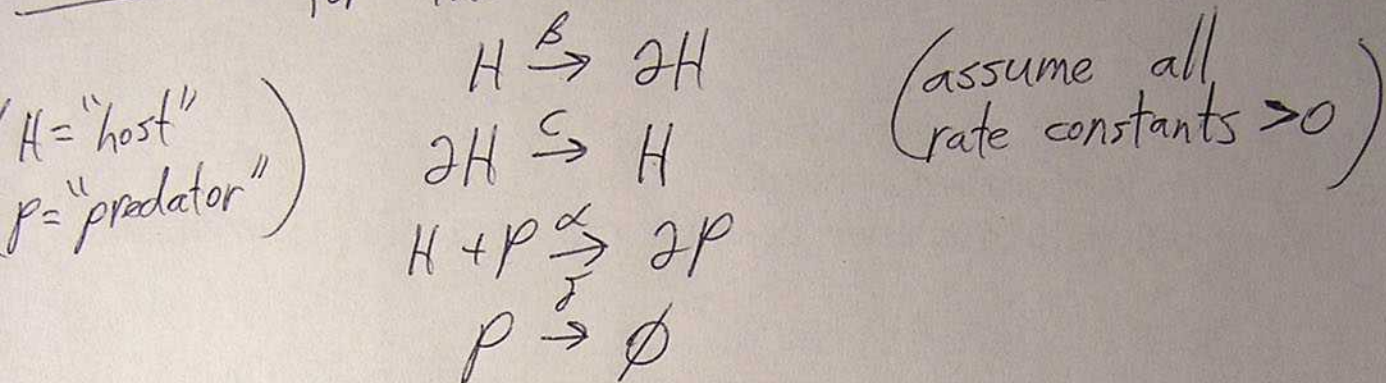 H β→ 2H
(H="host"
P="predator")
2H c→ H
H + P α→ 2P
P → ∅
(assume all
rate constants >0)